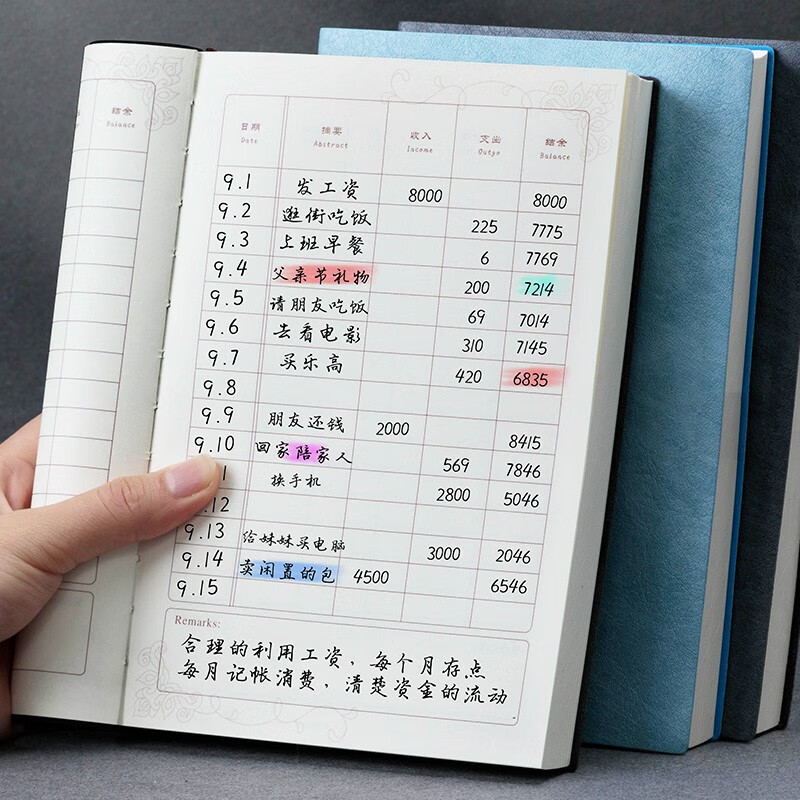 结余
Balance
日期 摘要 收入 支出 结余
Date Abstract Income Outgo Balance
9.1 发工资 8000 8000
9.2 逛街吃饭 225 7775
9.3 上班早餐 6 7769
9.4 父亲节礼物 200 7214
9.5 请朋友吃饭 69 7014
9.6 去看电影 310 7145
9.7 买乐高 420 6835
9.8
9.9 朋友还钱 2000 8415
9.10 回家陪家人 569 7846
1 换手机 2800 5046
.12
9.13 给妹妹买电脑 3000 2046
9.14 卖闲置的包 4500 6546
9.15
Remarks:
合理的利用工资，每个月存点
每月记帐消费，清楚资金的流动